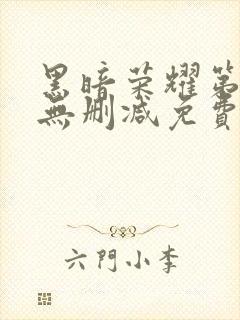 黑暗荣耀第
無删減免費
六門小李